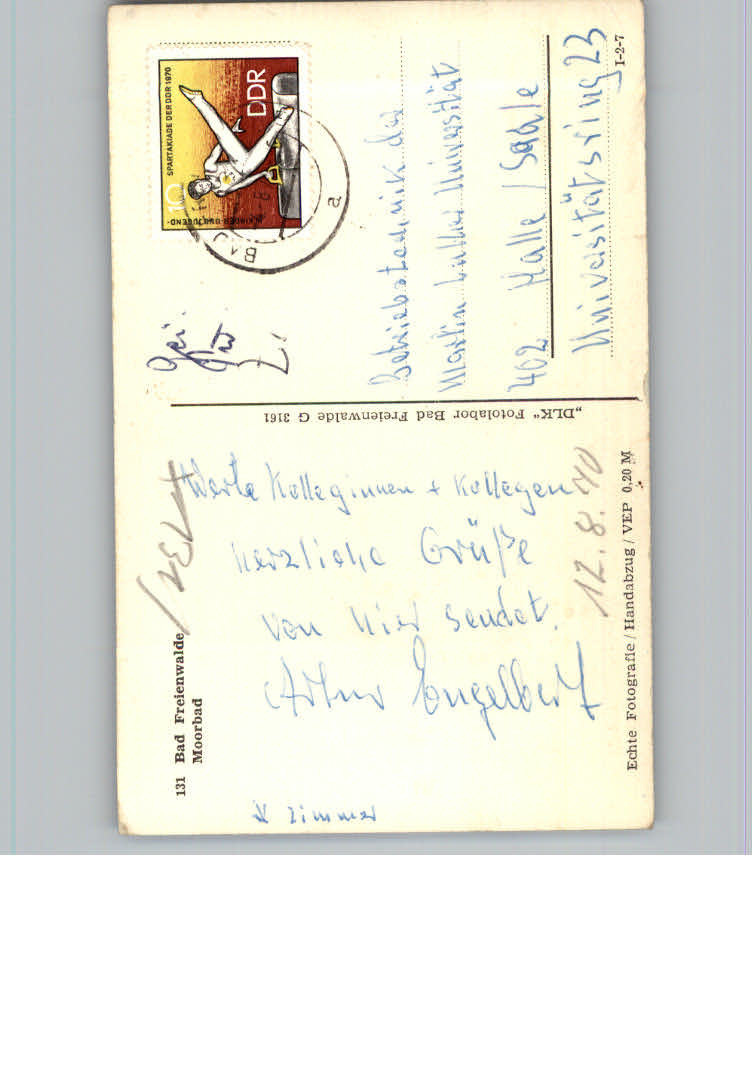 131 Bad Freienwalde
Moorbad
Werte Kolleginnen + Kollegen
herzliche Grüße
von hier sendet.
Artur Engelbert
x Zimmer
12.8.70
Echte Fotografie / Handabzug / VEP 0,20 M
„DLK“ Fotolabor Bad Freienwalde G 3161
10
KINDER- UND JUGEND-
SPARTAKIADE DER DDR 1970
DDR
BAD
a
Betriebstechnik der
Martin Luther Universität
402 Halle / Saale
Universitätsring 23
I-2-7